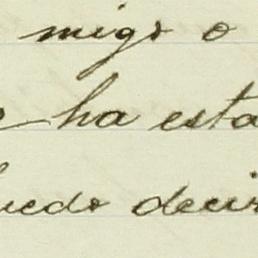 migo o
ha esta
uedo decir